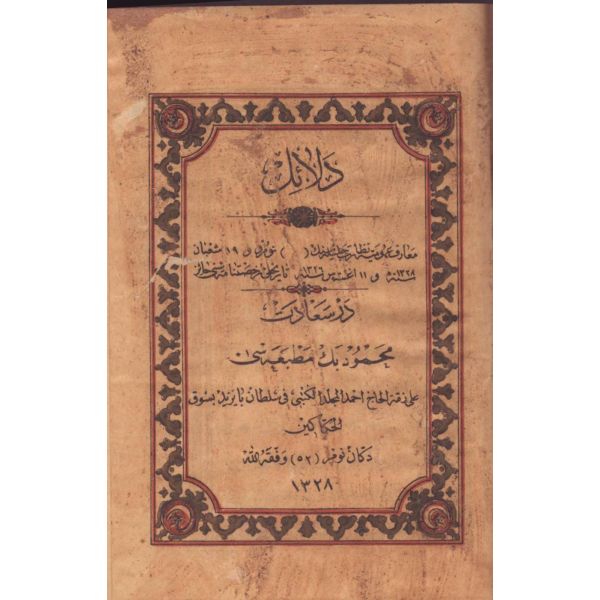 دلائل
معارف عمومیه نظارت جلیله‌سنك ( ) نومرو و ١٩ شعبان
سنه ١٣٢٨ و ١١ اغستوس سنه ١٣٢٦ تاریخلی رخصتنامه‌سنی حائزدر
درسعادت
محمود بك مطبعه‌سی
علی ذمة الحاج احمد المجلد الكتبی فی سلطان بایزید بسوق
الحكاكین
دكان نومرو (٥٢) وفقه الله
١٣٢٨